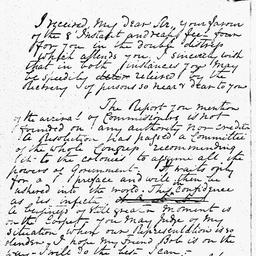 I received My Dear Sir, your favour
of the 8 Instant and really feel
for you in the double distress
which attends you, I sincerely wish
that in both instances you may
be speedily relieved by the
Recovery of persons so near & dear to you
The Report you mention
of the arrival of Commissioners is not
founded on any authority
a Resolution has passed a Committee
of the whole Congress recommending
it to the colonies to assume all the
powers of Government. It waits only
for a preface and will then be
ushered into the world. This Confidence
as yet
a business of this great moment is
you may judge of my
situation when our Representation is so
slender, I hope my friend Bob is on the
way. I will do the best I can.